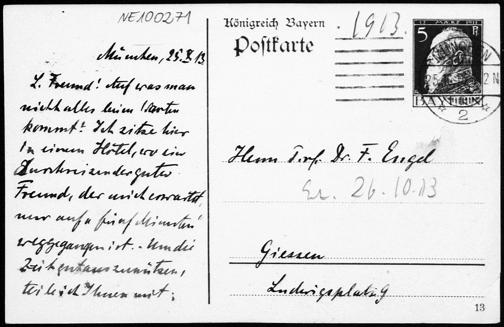 NE100271
Königreich Bayern
Postkarte
1913.
5
BAYERN
2
München, 25. X. 13
L. Freund! Auf was man
nicht alles beim Warten
kommt! Ich sitze hier
in einem Hotel, wo ein
durchreisender guter
Freund, der mich erwartet,
nur auf "fünf Minuten"
weggegangen ist. Um die
Zeit gut auszunützen,
teile ich Ihnen mit:
Herrn Prof. Dr. F. Engel
Er. 26.10.13
Giessen
Ludwigsplatz 9
13